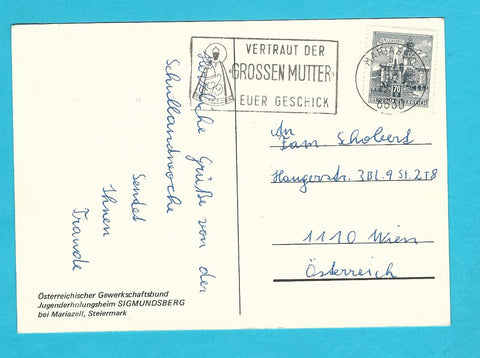 VERTRAUT DER
GROSSEN MUTTER
EUER GESCHICK
MARIAZELL
8630
70
Herzliche Grüße von der
Schullandwoche
Sendet
Ihnen
Traude
An
Fam. Schobert
3Bl. 9 St. 2 T8
1110 Wien
Österreich
Österreichischer Gewerkschaftsbund
Jugenderholungsheim SIGMUNDSBERG
bei Mariazell, Steiermark